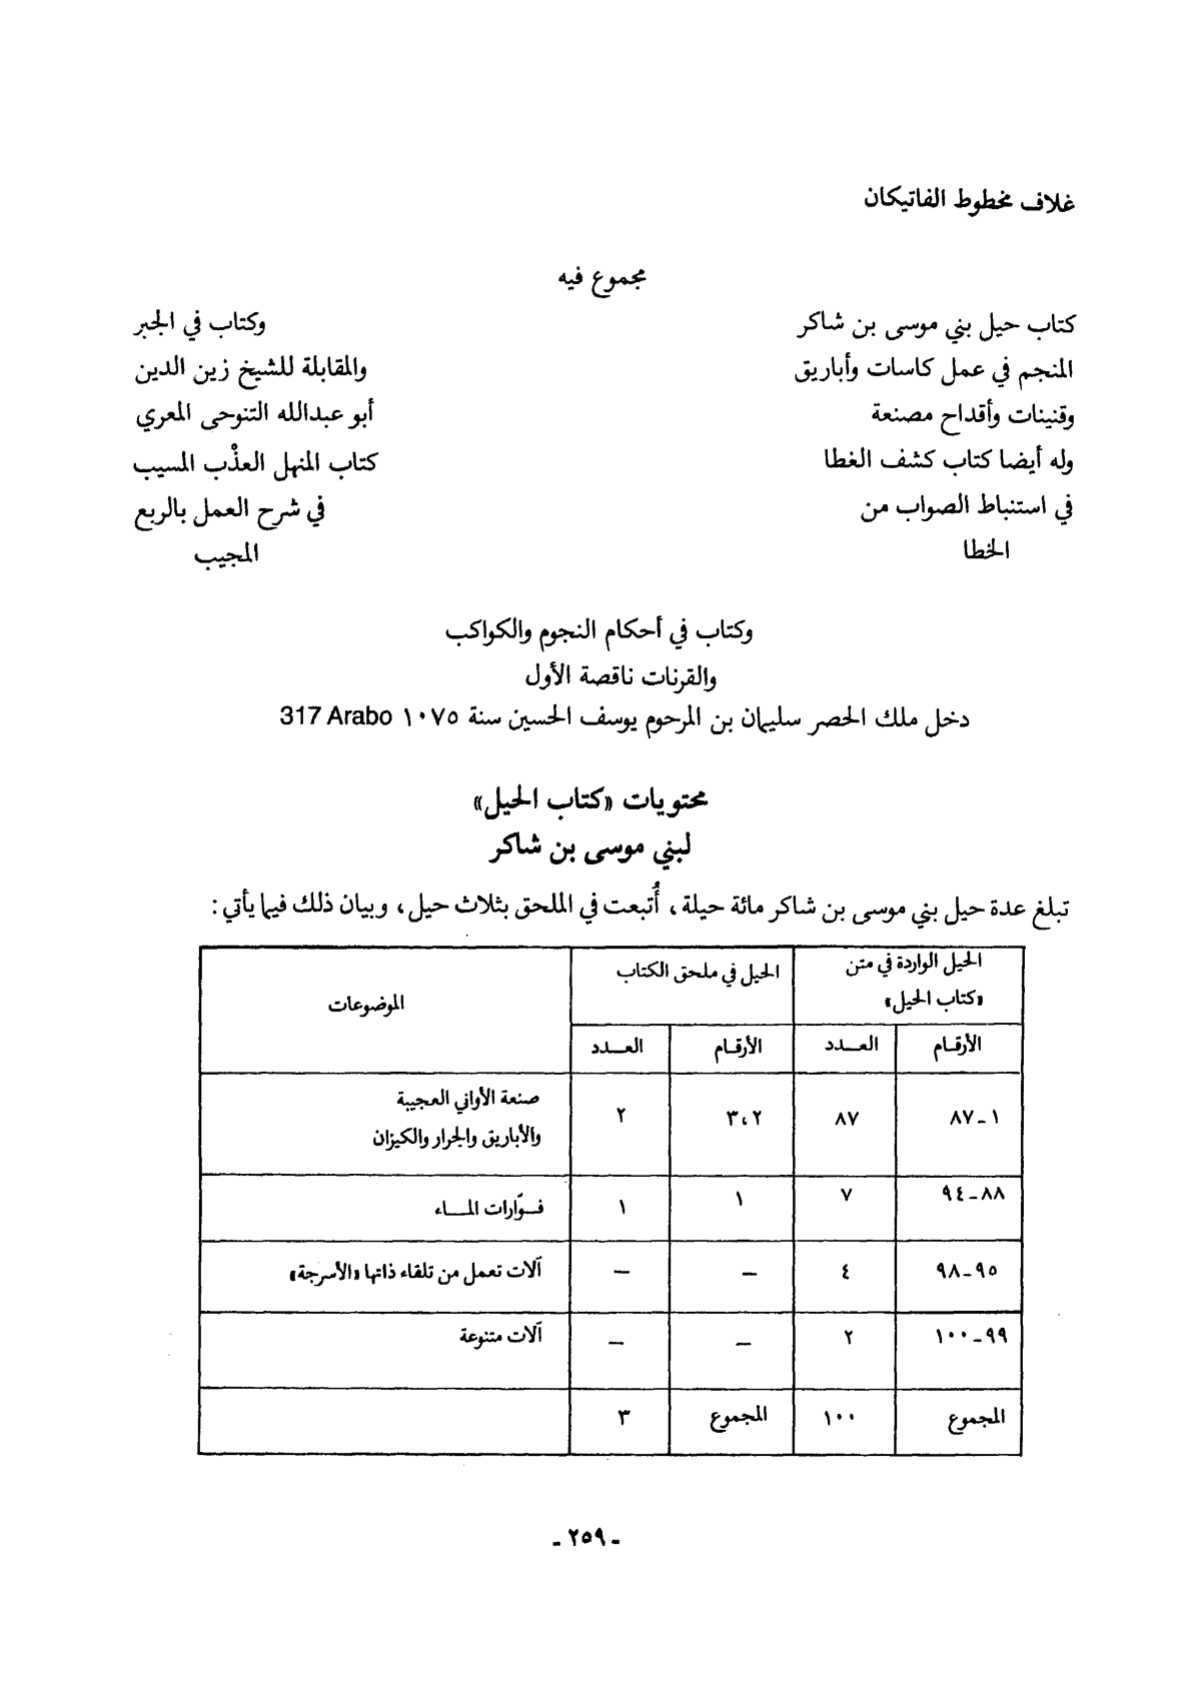 غلاف مخطوط الفاتيكان
مجموع فيه
كتاب حيل بني موسى بن شاكر
المنجم في عمل كاسات وأباريق
وقنينات وأقداح مصنعة
وله أيضا كتاب كشف الغطا
في استنباط الصواب من
الخطا
وكتاب في الجبر
والمقابلة للشيخ زين الدين
أبو عبدالله التنوحى المعري
كتاب المنهل العذْب المسيب
في شرح العمل بالربع
المجيب
وكتاب في أحكام النجوم والكواكب
والقرنات ناقصة الأول
دخل ملك الحصر سليمان بن المرحوم يوسف الحسين سنة ١٠٧٥ 317 Arabo
محتويات «كتاب الحيل»
لبني موسى بن شاكر
تبلغ عدة حيل بني موسى بن شاكر مائة حيلة، أُتبعت في الملحق بثلاث حيل، وبيان ذلك فيما يأتي:
الحيل الواردة في متن
«كتاب الحيل»
الحيل في ملحق الكتاب
الموضوعات
الأرقـام العـــدد الأرقـام العـــدد
١-٨٧ ٨٧ ٣،٢ ٢ صنعة الأواني العجيبة
والأباريق والجرار والكيزان
٨٨-٩٤ ٧ ١ ١ فـوّارات المـــاء
٩٥-٩٨ ٤ – – آلات تعمل من تلقاء ذاتها «الأسرجة»
٩٩-١٠٠ ٢ – – آلات متنوعة
المجموع ١٠٠ المجموع ٣
- ٢٥٩ -